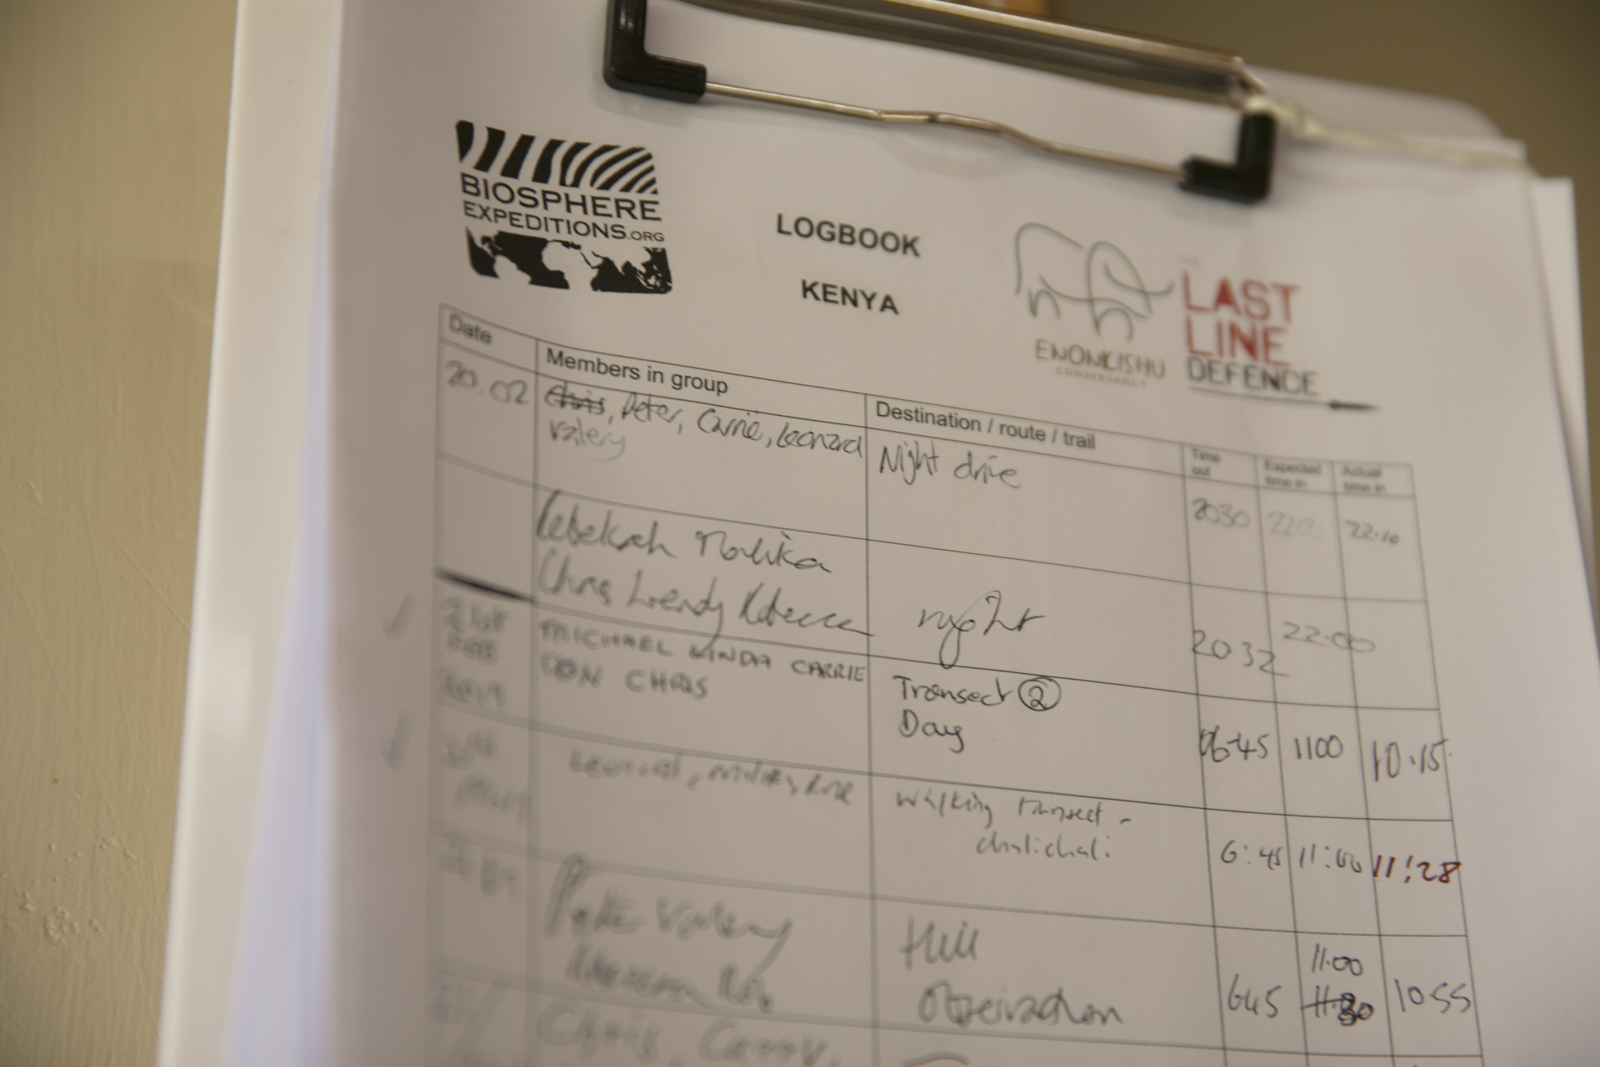 BIOSPHERE
EXPEDITIONS.ORG
LOGBOOK
KENYA
ENONKISHU
CONSERVANCY
LAST
LINE
DEFENCE
Date
Members in group
Destination / route / trail
Time out
Expected time in
Actual time in
20.02
Chris, Peter, Carrie, Leonard
Valery
Night drive
2030
2200
22.10
Rebekah
Chris Wendy Rebecca
night
2032
22:00
21st
MICHAEL LINDA CARRIE
DON CHRIS
Transect 2
Day
06.45
1100
10.15
Walking transect -
chalichali.
6:45
11:00
11:28
Valery
Hill
Observation
645
11.00
11.30
1055
Chris,